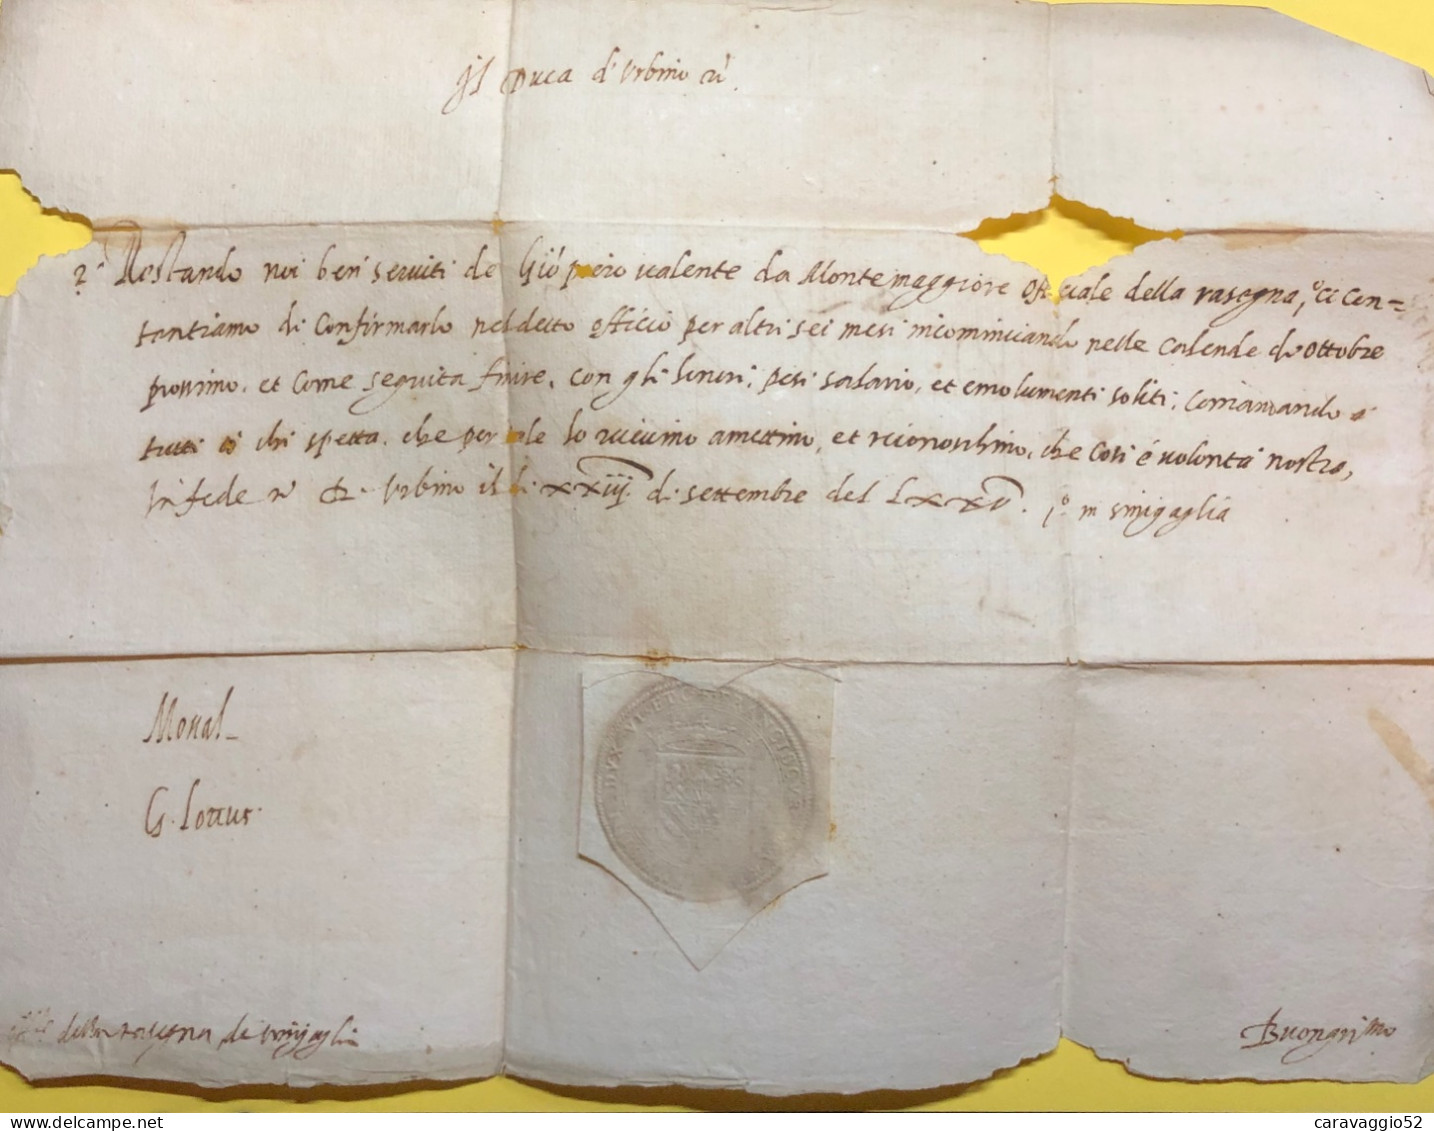 Il Duca d'Urbino
Restando noi ben serviti de Gio piero valente da Montemaggiore Offi ciale della rasegna, ci con=
tentiamo di Confirmarlo nel detto officio per altri sei mesi incominciando nelle Calende de Ottobre
prossimo, et Come seguita finire, con gli honori, pesi salario, et emolumenti soliti, Comandando a
tutti a chi spetta, che per tale lo ammettino, et riconoschino, che Cosi é volontà nostra,
In fede Urbino il di XXiij di settembre del LXXV. in sinigaglia
DUX
Monal_
G.
della rasegna de
caravaggio52